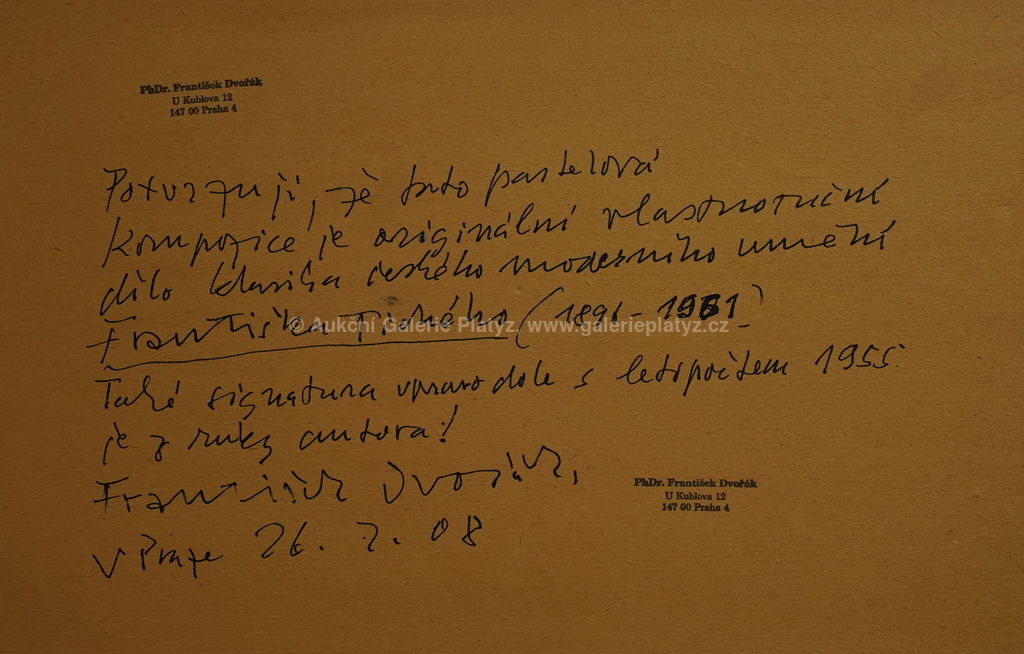 PhDr. František Dvořák
U Kublova 12
147 00 Praha 4
Potvrzuji, že tato pastelová
kompozice je originální vlastnoruční
dílo klasika českého moderního umění
Františka Tichého (1896 - 1961)
© Aukční Galerie Platýz, www.galerieplatyz.cz
Také signatura vpravo dole s letopočtem 1955
je z ruky autora!
František Dvořák,
PhDr. František Dvořák
U Kublova 12
147 00 Praha 4
V Praze 26. 2. 08